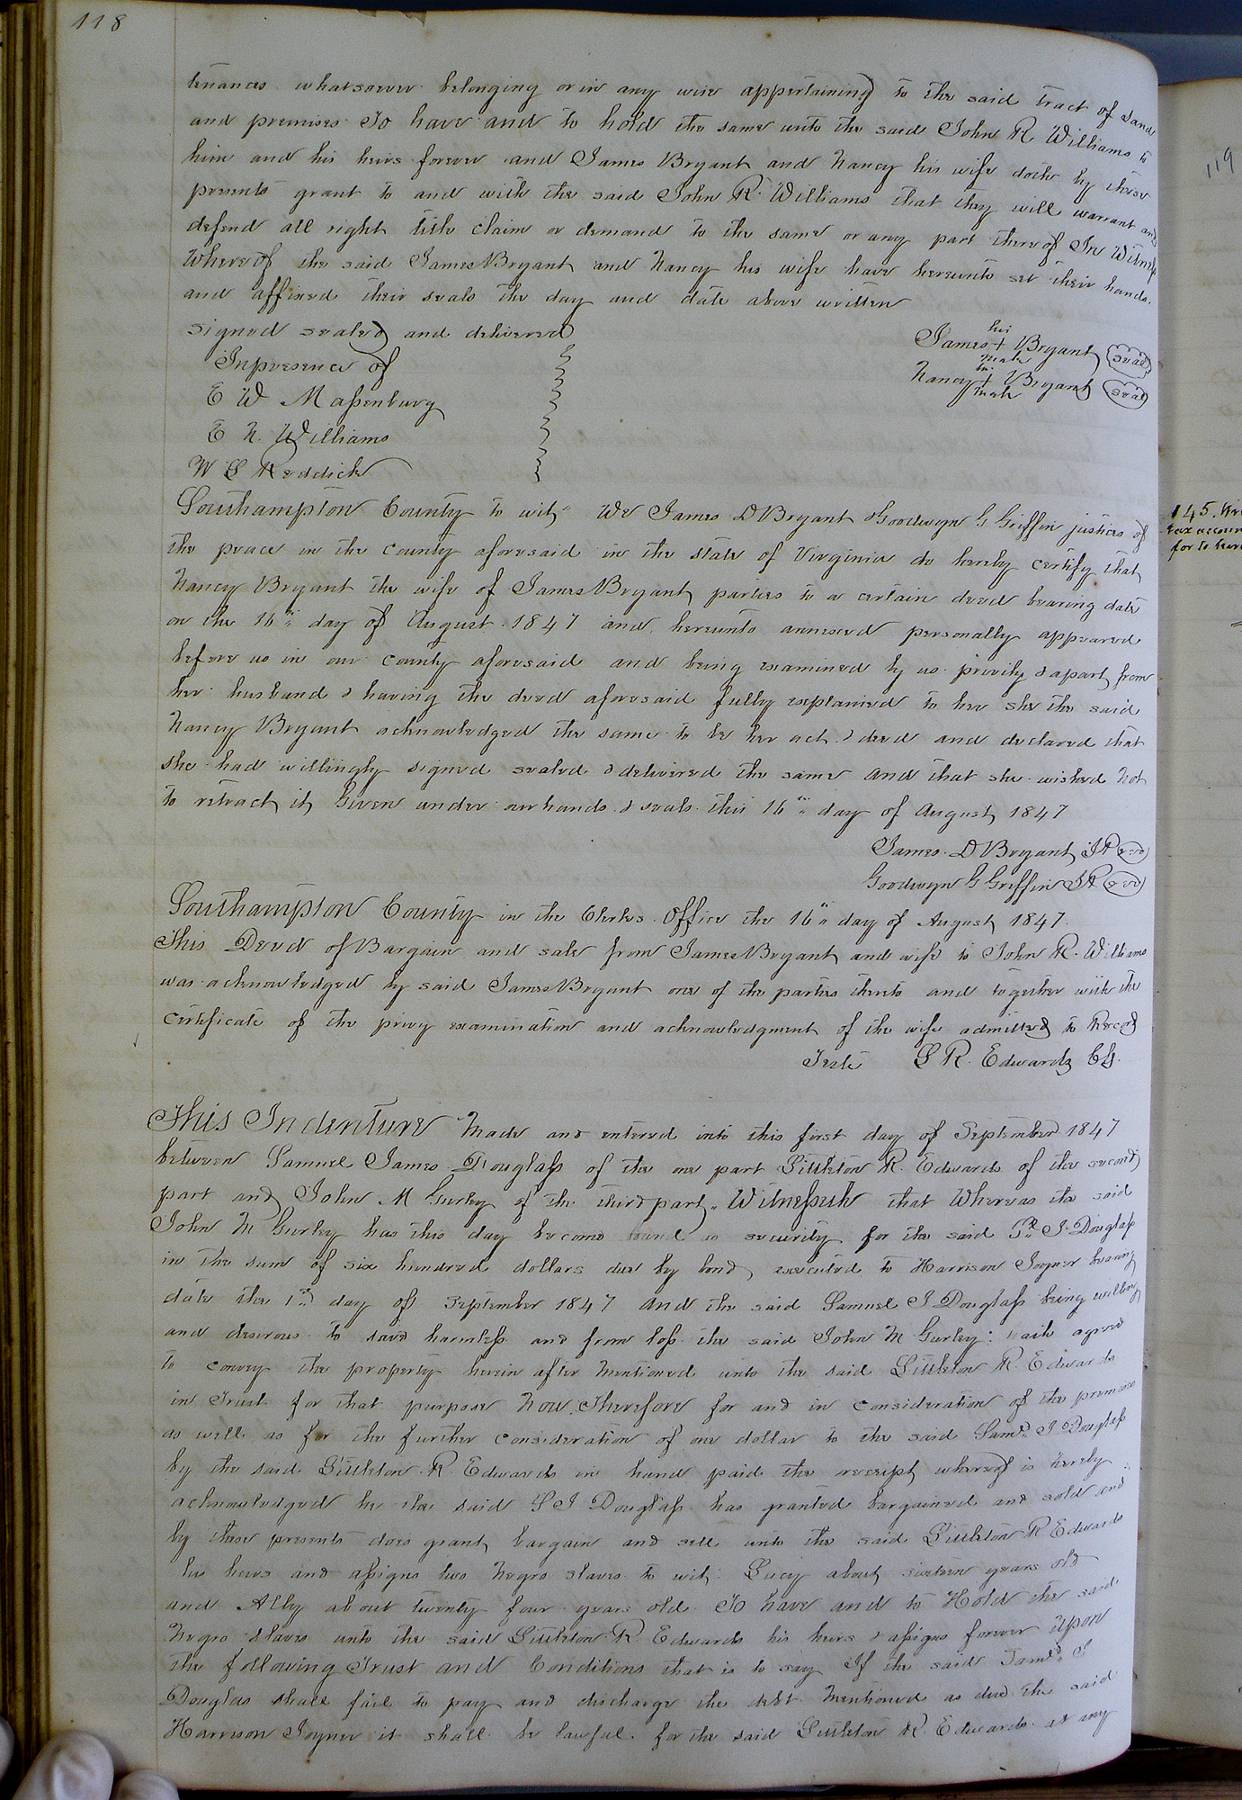 118
tenances whatsoever belonging or in any wise appertaining to the said tract of Land
and premises To have and to hold the same unto the said John R Williams to
him and his heirs forever and James Bryant and Nancy his wife doth by these
presents grant to and with the said John R. Williams that they will warrant and
defend all right title claim or demand to the same or any part thereof In Witness
Whereof the said James Bryant and Nancy his wife have hereunto set their hands
and affixed their seals the day and date above written
signed sealed and delivered
Inpresence of
E W Maßenburg
E N. Williams
W S Reddick
his
James + Bryant seal
mark
her
Nancy + Bryant seal
mark
Southampton County to wit We James D Bryant & Goodwyn G Griffin justices of
the peace in the county aforesaid in the state of Virginia do hereby certify that
Nancy Bryant the wife of James Bryant parties to a certain deed bearing date
on the 16th day of August 1847 and hereunto annexed personally appeared
before us in our county aforesaid and being examined by us privily & apart from
her husband & having the deed aforesaid fully explained to her she the said
Nancy Bryant acknowledged the same to be her act & deed and declared that
she had willingly signed sealed & delivered the same and that she wished not
to retract it Given under our hands & seals this 16th day of August 1847
James D Bryant JP seal
Goodwyn G Griffin JP seal
Southampton County in the Clerks Office the 16th day of August 1847
This Deed of Bargain and sale from James Bryant and wife to John R. Williams
was acknowledged by said James Bryant one of the parties thereto and together with the
certificate of the privy examination and acknowledgment of the wife admitted to Record
Teste L R. Edwards Clk.
This Indenture Made and entered into this first day of September 1847
between Samuel James Douglaß of the one part Littleton R. Edwards of the second
part and John M Gurley of the third part. Witneßeth that Whereas the said
John M Gurley has this day become bound as security for the said S. J. Douglaß
in the sum of six hundred dollars due by bond executed to Harrison Joyner bearing
date the 1st day of September 1847 and the said Samuel J Douglaß being willing
and desirous to save harmleß and from loß the said John M Gurley: hath agreed
to convey the property herein after Mentioned unto the said Littleton R. Edwards
in Trust for that purpose Now Therefore for and in consideration of the premises
as well as for the further consideration of one dollar to the said Saml. J Douglaß
by the said Littleton R. Edwards in hand paid the receipt whereof is hereby
acknowledged he the said S J Douglaß has granted bargained and sold and
by these presents does grant bargain and sell unto the said Littleton R Edwards
his heirs and aßigns two Negro slaves to wit: Lucy about sixteen years old
and Ally about twenty four years old To have and to Hold the said
Negro slaves unto the said Littleton R Edwards his heirs & aßigns forever Upon
the following Trust and Conditions that is to say If the said Saml. J
Douglas shall fail to pay and discharge the debt Mentioned as due the said
Harrison Joyner it shall be lawful for the said Littleton R. Edwards at any
119